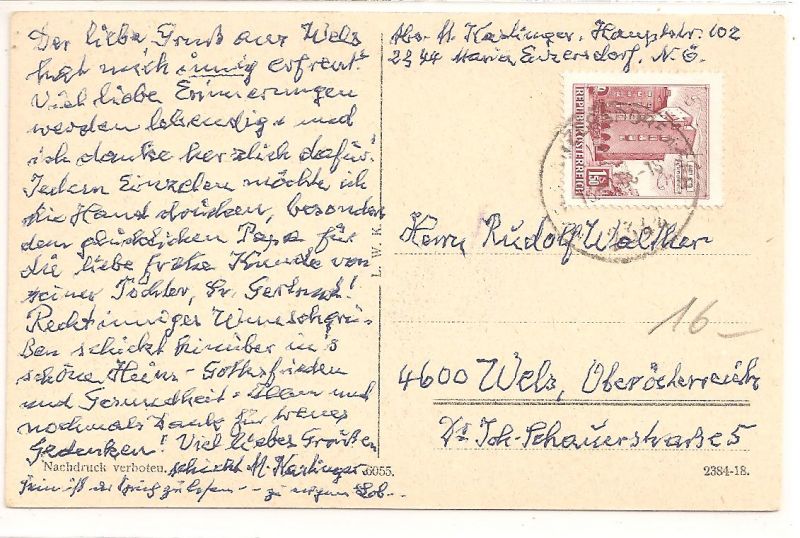 Der liebe Gruß aus Wels
hat mich innig erfreut!
Viel liebe Erinnerungen
werden lebendig und
ich danke herzlich dafür!
Jedem Einzelnen möchte ich
die Hand drücken, besonders
dem glücklichen Papa für
die liebe Kunde von
seiner Tochter, Sr.
Recht inniges Wunschgrü-
ßen schickt hinüber in's
schöne Heim - Gottesfrieden
und Gesundheit Allen und
nochmals Dank für treues
Gedenken! Viel liebes Grüßen
Nachdruck verboten. schickt M. Karlinger 6055.
Fein ist der Spruch zu lesen -- zu Lob --
L. W. K.
Abs. M. Karlinger, Hauptstr. 102
2344 Maria Enzersdorf, N.Ö.
REPUBLIK ÖSTERREICH
1.50
Herrn Rudolf Walther
16-
4600 Wels, Oberösterreich
Dr. Joh-Schauerstraße 5
2384-18.